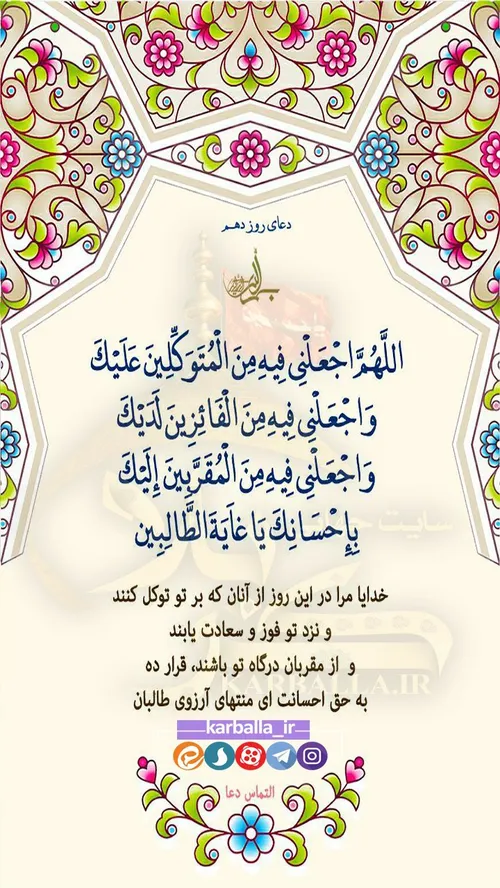 دعای روز دهم
اللَّهُمَّ اجْعَلْنِی فِیهِ مِنَ الْمُتَوَکِّلِینَ عَلَیْکَ
وَاجْعَلْنِی فِیهِ مِنَ الْفَائِزِینَ لَدَیْکَ
وَاجْعَلْنِی فِیهِ مِنَ الْمُقَرَّبِینَ إِلَیْکَ
بِإِحْسَانِکَ یَا غَایَةَ الطَّالِبِین
سایت جامع
KARBALLA.IR
خدایا مرا در این روز از آنان که بر تو توکل کنند
و نزد تو فوز و سعادت یابند
و از مقربان درگاه تو باشند، قرار ده
به حق احسانت ای منتهای آرزوی طالبان
karballa_ir
التماس دعا